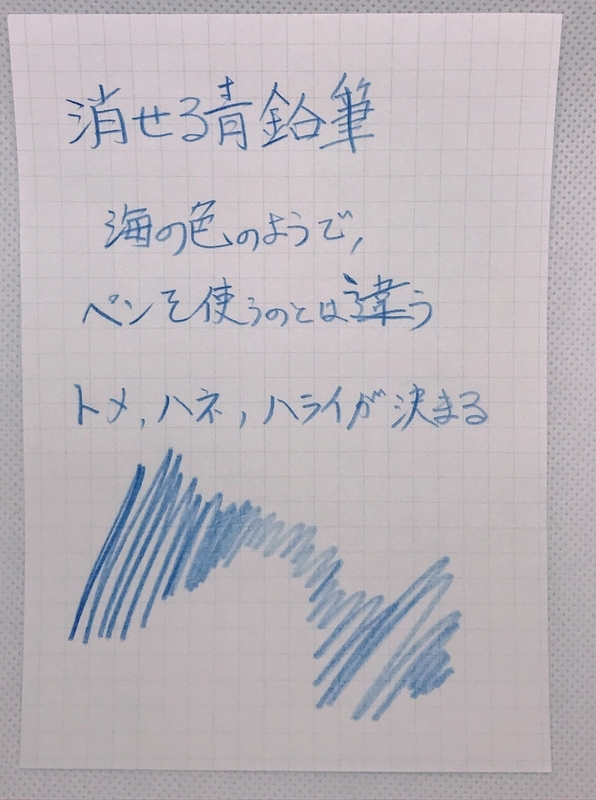 消せる青鉛筆
海の色のようで,
ペンを使うのとは違う
トメ,ハネ,ハライが決まる